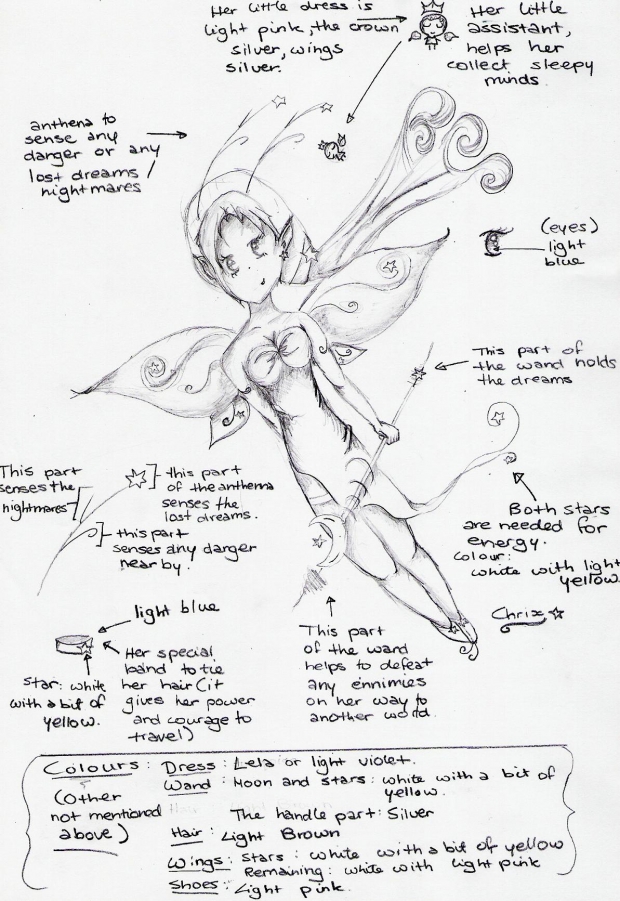 Her little dress is
light pink, the crown
silver, wings
silver.
Her little
assistant,
helps her
collect sleepy
minds.
anthena to
sense any
danger or any
lost dreams
nightmares
(eyes)
light
blue
This part of
the wand holds
the dreams
This part
senses the
nightmares
this part
of the anthena
senses the
lost dreams.
this part
senses any danger
near by.
Both stars
are needed for
energy.
Colour:
white with light
yellow.
Chrix
light blue
Her special
band to tie
her hair (it
gives her power
and courage to
travel)
star: white
with a bit of
yellow.
This part
of the ward
helps to defeat
any ennimies
on her way to
another world.
Colours:
(Other
not mentioned
above)
Dress: Lela or light violet.
Wand: Moon and stars: white with a bit of
yellow.
The handle part: Silver
Hair: Light Brown
Wings: Stars: white with a bit of yellow
Remaining: white with light pink
Shoes: Light pink.